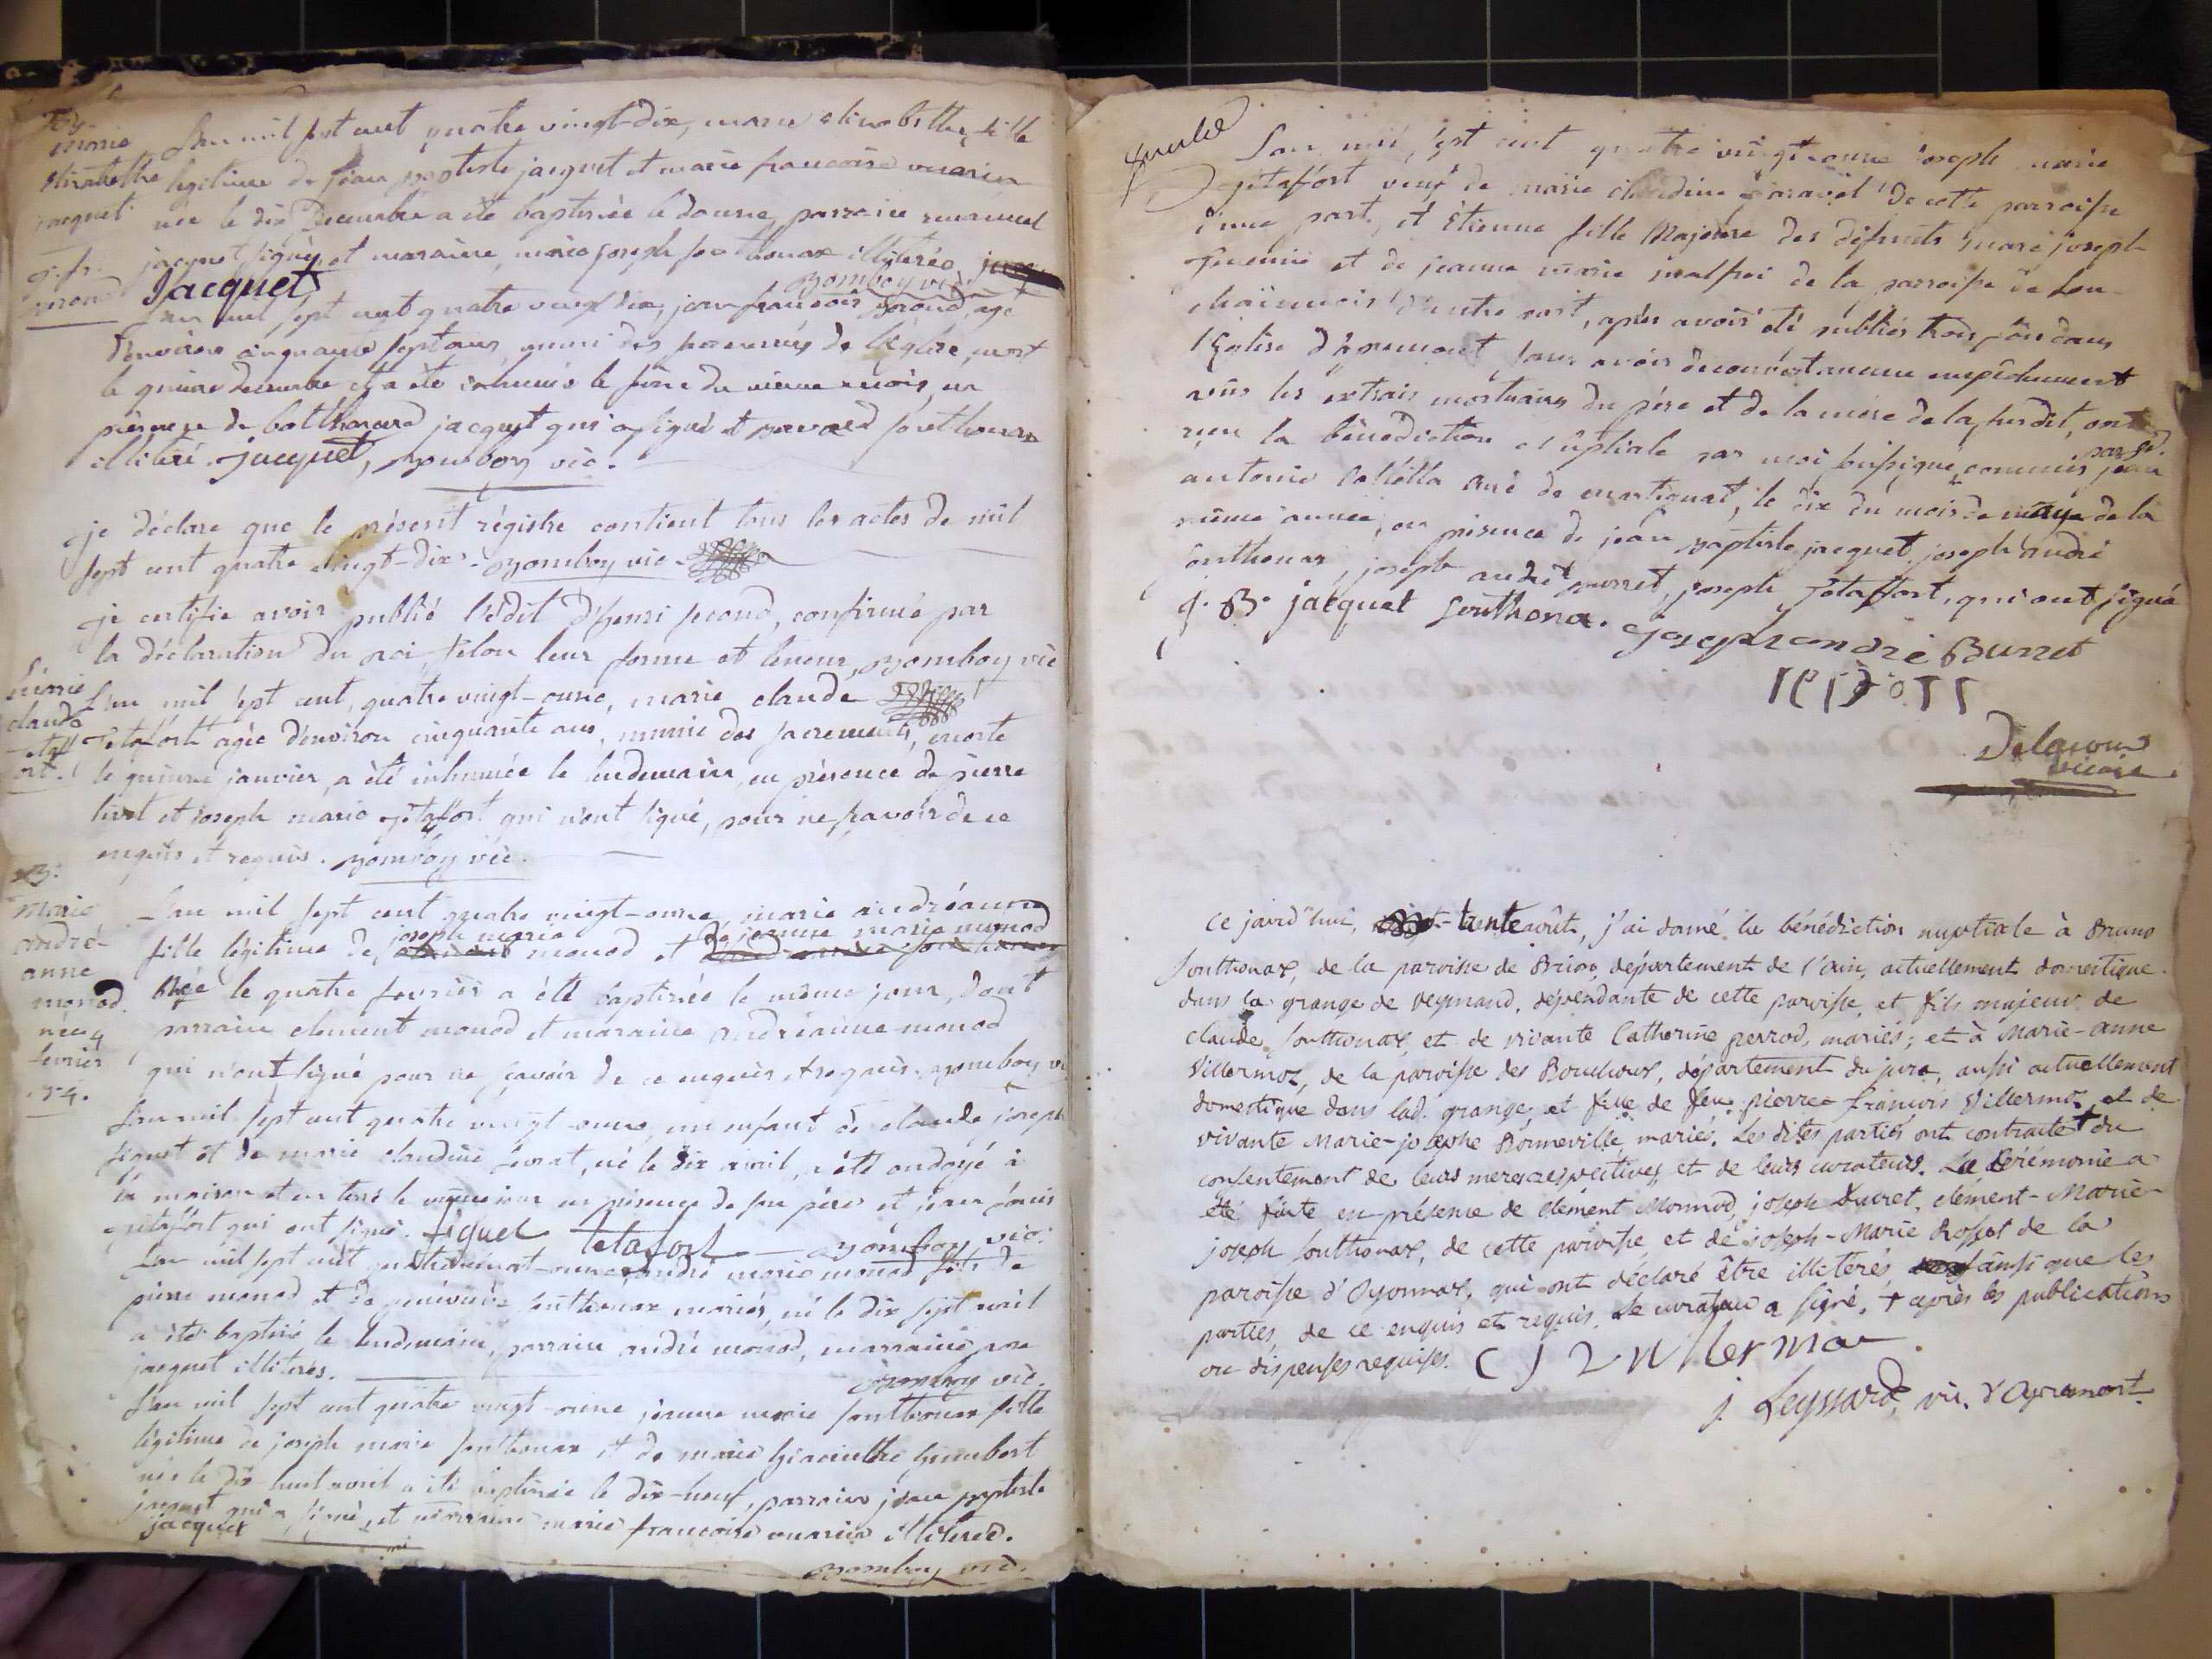 marie
elizabethe
jacquet
L'an mil sept cent quatre vingt-dix, marie elizabethe, fille
legitime de jean baptiste jacquet et marie francoise vuarin
née le dix Decembre a été baptisée le douze, parrain emanuel
jacquet signé, et maraine, marie joseph southonax illiterée
gomboy vic
Jacquet
L'an mil sept cent quatre vingt dix, jean francois age
d'environ cinquante sept ans, muni des sacrements de l'église, mort
le quinze decembre et a été inhumé le seize du meme mois, en
présence de balthazard jacquet qui a signé et southonax
illiteré. jacquet, gomboy vic.
je déclare que le présent régistre contient tous les actes de mil
sept cent quatre vingt-dix. gomboy vic.
je certifie avoir publié l'édit d'henri second, confirmée par
la déclaration du roi, selon leur forme et teneur, gomboy vic
marie
claude
L'an mil sept cent quatre vingt-onze, marie claude
Tetafort agée d'environ cinquante ans, munie des sacrements, morte
le quinze janvier, a été inhumée le lendemain, en présence de pierre
et joseph marie getafort qui n'ont signé, pour ne savoir de ce
enquis et requis. gomboy vic.
B.
Marie
andré-
anne
monod.
née 4
fevrier
L'an mil sept cent quatre vingt-onze, marie andréanne
joseph marie de jeanne marie monod
fille légitime de monod et
Née le quatre fevrier a été baptisée le même jour, dont
parrain clement monod et maraine andréanne monod
qui n'ont signé pour ne savoir de ce enquis et requis. gomboy vi
L'an mil sept cent quatre vingt-onze, un enfant de claude joseph
figuet et de marie claudine, né le dix avril, a été ondoyé à
la maison et enterré le même jour en présence de son père et jean louis
getafort qui ont signé. figuet tetafort gomboy vic.
L'an mil sept cent quatre vingt-onze, andré marie monod fils de
pierre monod et de southonax mariés, né le dix sept avril
a été baptisé le lendemain, parrain andré monod, marraine
jacquet illiteres.
gomboy vic.
L'an mil sept cent quatre vingt-onze jeanne marie southonax fille
légitime de joseph marie southonax et de marie hiacinthe humbert
née le dix huit avril a été baptisée le dix-neuf, parrain jean baptiste
jacquet qui a signé, et marraine marie francoise vuarin illiteree.
jacquet
gomboy vic.
L'an mil sept cent quatre vingt onze joseph marie
getafort veuf de marie claudine De cette parroisse
d'une part, et Etienne fille Majeure des défunts marc joseph
et de jeanne marie de la parroisse de
d'autre part, après avoir été publiés trois fois dans
l'Eglise d'apremont, sans avoir decouvert aucun empêchement
vus les extrais mortuaires du père et de la mère de la susdit, ont
recu la bénédiction nuptiale par moi soussigné, commis par Sr. jean
antoine curé de martignat, le dix du mois de de la
même année, en présence de jean baptiste jacquet, joseph andré
southonax, joseph andré burret, joseph getaffort, qui ont signé
j. B. jacquet southona. joseph andré Burret
Delacour
vicaire
ce jourd'hui, trente août, j'ai donné la bénédiction nuptiale à Bruno
southonax, de la paroisse de Brion, département de l'ain, actuellement domestique
dans la grange de veymand, dépendante de cette paroisse, et fils majeur de
claude southonax, et de vivante Catherine perrod, mariés; et à Marie-anne
Villermoz, de la paroisse des Bouchoux, département du jura, aussi actuellement
domestique dans lad. grange, et fille de feu pierre françois Villermoz, et de
vivante Marie-josephe Bonneville, mariés. Les dites parties ont contracté + du
consentement de leurs meres respectives, et de leurs curateurs. La Cérémonie a
été faite en présence de clément Monnod, joseph Ducret, clément-Marie-
joseph southonax, de cette paroisse, et de joseph-Marie Rosset de la
paroisse d'Oyonnax, qui ont déclaré être illeterés, ainsi que les
parties, de ce enquis et requis. Le curateur a signé. + après les publications
ou dispenses requises. C J villermoz
j. Leyssard, vic. d'Apremont.